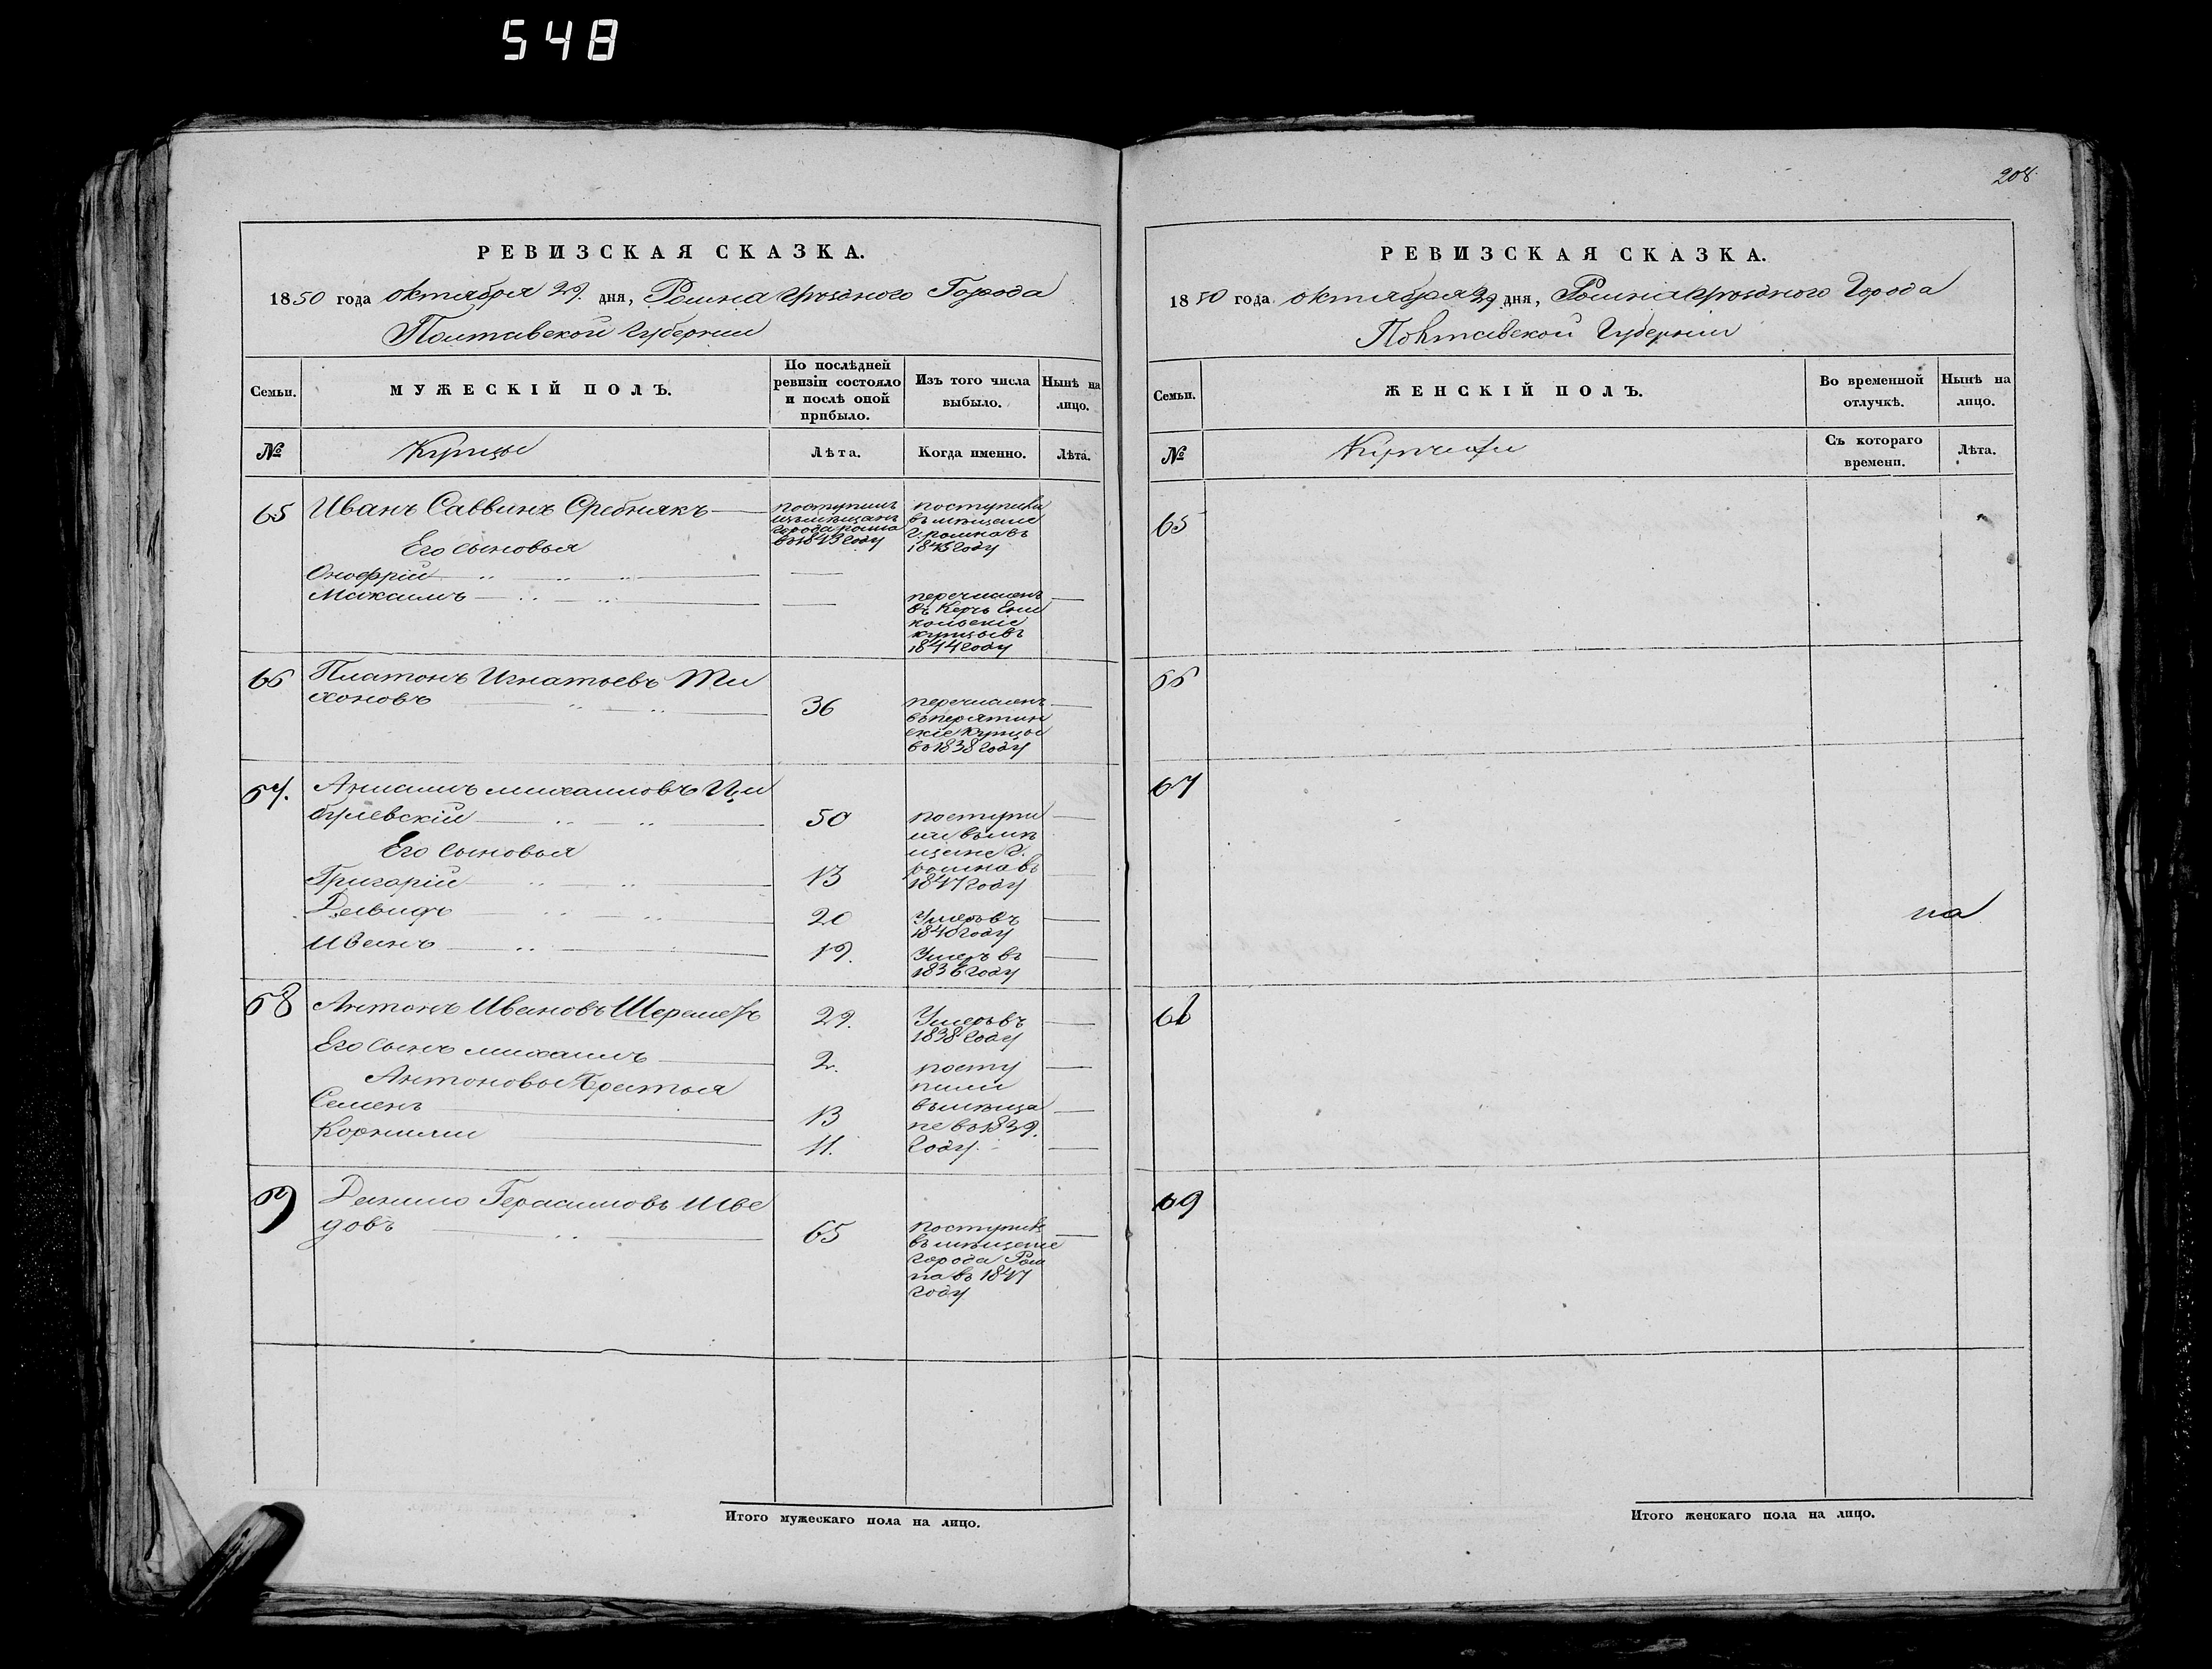 548
208.
РЕВИЗСКАЯ СКАЗКА.
1850 года октября 29. дня, Ромна уѣзднаго Города
Полтавской Губернии
Семьи.
МУЖЕСКІЙ ПОЛЪ.
По послѣдней
ревизіи состояло
и послѣ оной
прибыло.
Изъ того числа
выбыло.
Нынѣ на
лицо.
№
Купцы
Лѣта.
Когда именно.
Лѣта.
65 Иванъ Саввинъ Сребнякъ
поступилъ
изъ мѣщанъ
города ромна
въ 1843 году
поступили
въ мѣщане
г. ромна въ
1845 году
Его сыновья
Онофрій
Максимъ
перечисленъ
въ Керчь Ени
кольскіе
купцы въ
1844 году
66 Платонъ Игнатьевъ Ти
хоновъ
36
перечисленъ
въ перятин
скіе купцы
въ 1838 году
67. Михаиловъ Ци
булевскій
50
поступи
ли въ мѣ
щане г.
ромна въ
1847 году
Его сыновья
Григорій
13
Давидъ
20
Умеръ въ
1840 году
Иванъ
19.
Умеръ въ
1836 году
68 Антонъ Ивановъ Шереметъ
29.
Умеръ въ
1838 году
Его сынъ михаилъ
2.
посту
пили
въ мѣща
не въ 1839.
году.
Антоновы братья
Семенъ
13
Корнилій
11.
69 Данило Герасимовъ Шве
довъ
65
поступилъ
въ мѣщане
города Ром
на въ 1847
году
Итого мужескаго пола на лицо.
РЕВИЗСКАЯ СКАЗКА.
1850 года октября 29 дня, Ромна уѣзднаго Города
Полтавской Губерніи
Семьи.
ЖЕНСКІЙ ПОЛЪ.
Во временной
отлучкѣ.
Нынѣ на
лицо.
№
Купчихи
Съ котораго
времени.
Лѣта.
65
66
67
на
68
69
Итого женскаго пола на лицо.